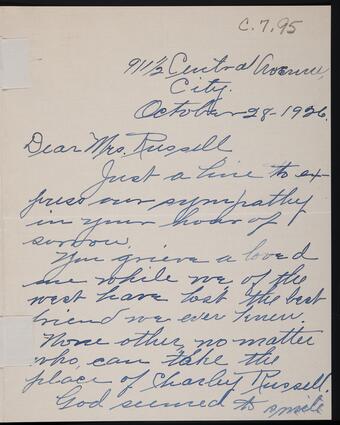 C.7.95
911½ Central Avenue,
City.
October-28-1926.
Dear Mrs. Russell
Just a line to ex-
press our sympathy
in your hour of
sorrow.
You grieve a loved
one while we of the
west have lost the best
friend we ever knew.
None other, no matter
who, can take the
place of Charley Russell.
God seemed to smile